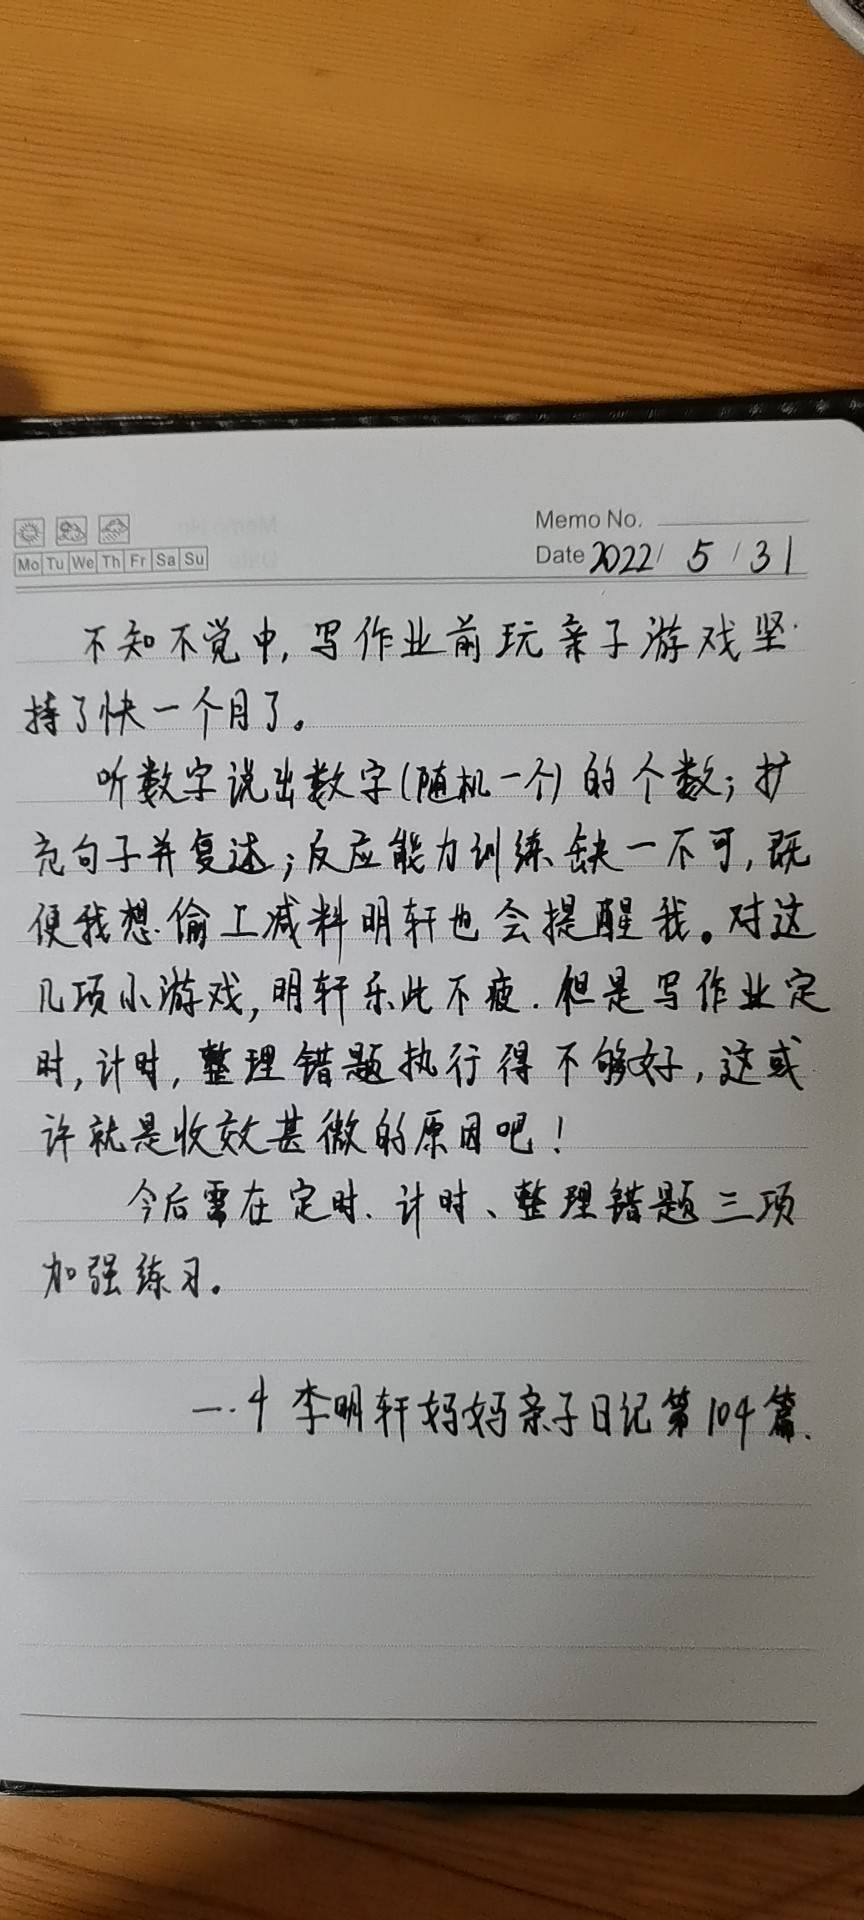 Memo No.
Mo Tu We Th Fr Sa Su
Date 2022/ 5 / 31
不知不觉中，写作业前玩亲子游戏坚
持了快一个月了。
听数字说出数字(随机一个)的个数；扩
充句子并复述；反应能力训练缺一不可，既
便我想偷工减料明轩也会提醒我。对这
几项小游戏，明轩乐此不疲．但是写作业定
时，计时，整理错题执行得不够好，这或
许就是收效甚微的原因吧！
今后需在定时、计时、整理错题三项
加强练习。
一.4 李明轩妈妈亲子日记第104篇.